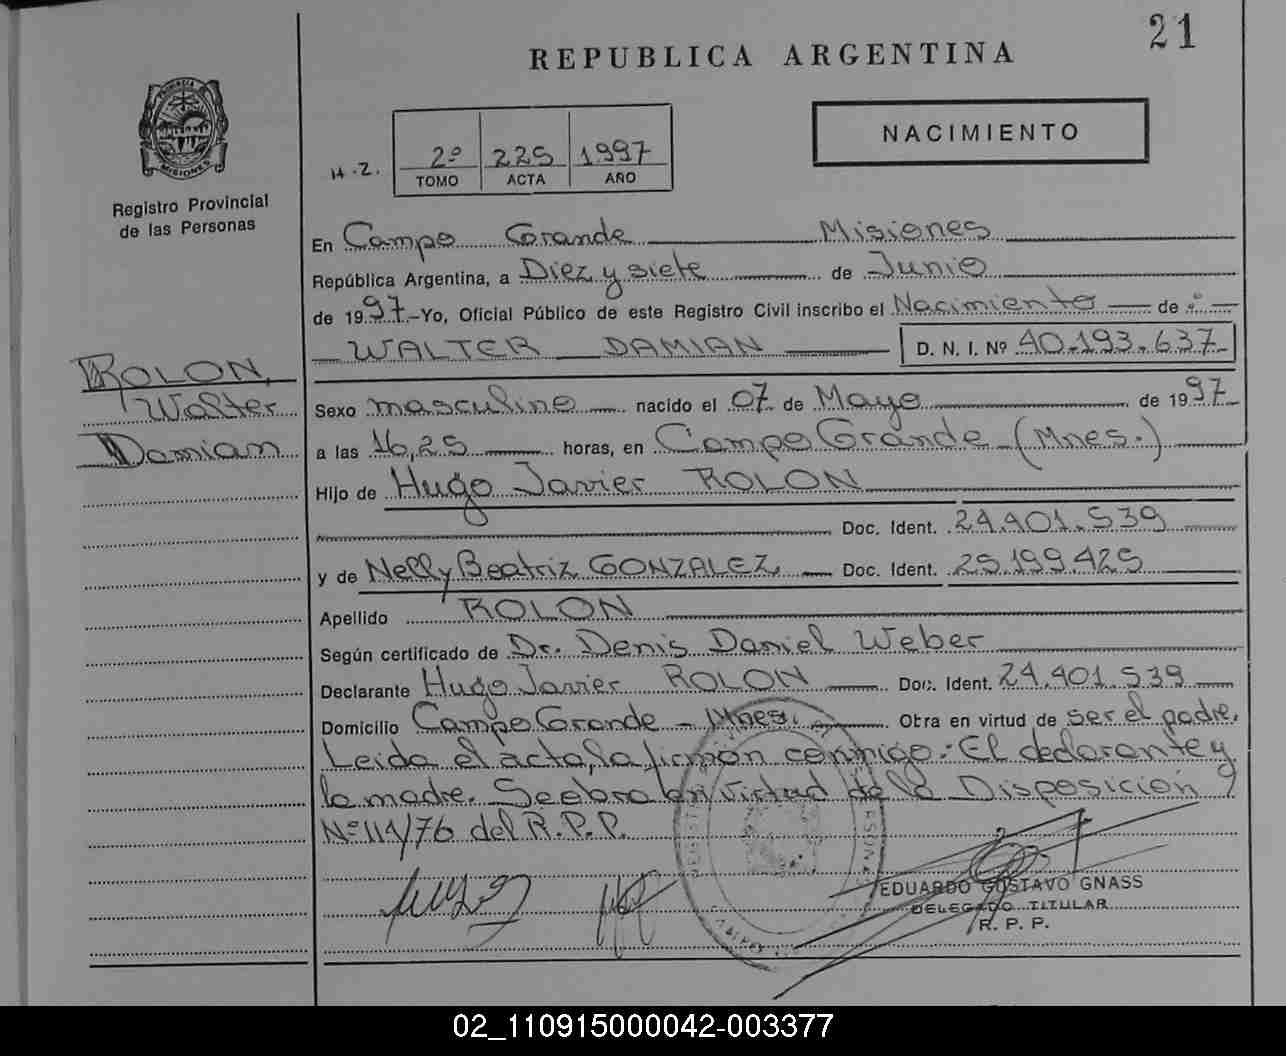 21
REPUBLICA ARGENTINA
PROVINCIA
MISIONES
NACIMIENTO
H.Z.
2º 225 1997
TOMO ACTA AÑO
Registro Provincial
de las Personas
En Campo Grande Misiones
República Argentina, a Diez y siete de Junio
de 1997.-Yo, Oficial Público de este Registro Civil inscribo el Nacimiento de
WALTER DAMIAN D. N. I. Nº 40.193.637
ROLON,
Walter
Damian
Sexo masculino nacido el 07 de Mayo de 1997
a las 16,25 horas, en Campo Grande (Mnes.)
Hijo de Hugo Javier ROLON
Doc. Ident. 24.401.539
y de Nelly Beatriz GONZALEZ, Doc. Ident. 25.199.425
Apellido ROLON
Según certificado de Dr. Denis Daniel Weber
Declarante Hugo Javier ROLON Doc. Ident. 24.401.539
Domicilio Campo Grande - Mnes. Obra en virtud de ser el padre.
Leida el acta, la firman conmigo: El declarante y
la madre. Se obra en virtud de la Disposición
Nº 114/76 del R.P.P.
EDUARDO GUSTAVO GNASS
DELEGADO TITULAR
R. P. P.
02_110915000042-003377